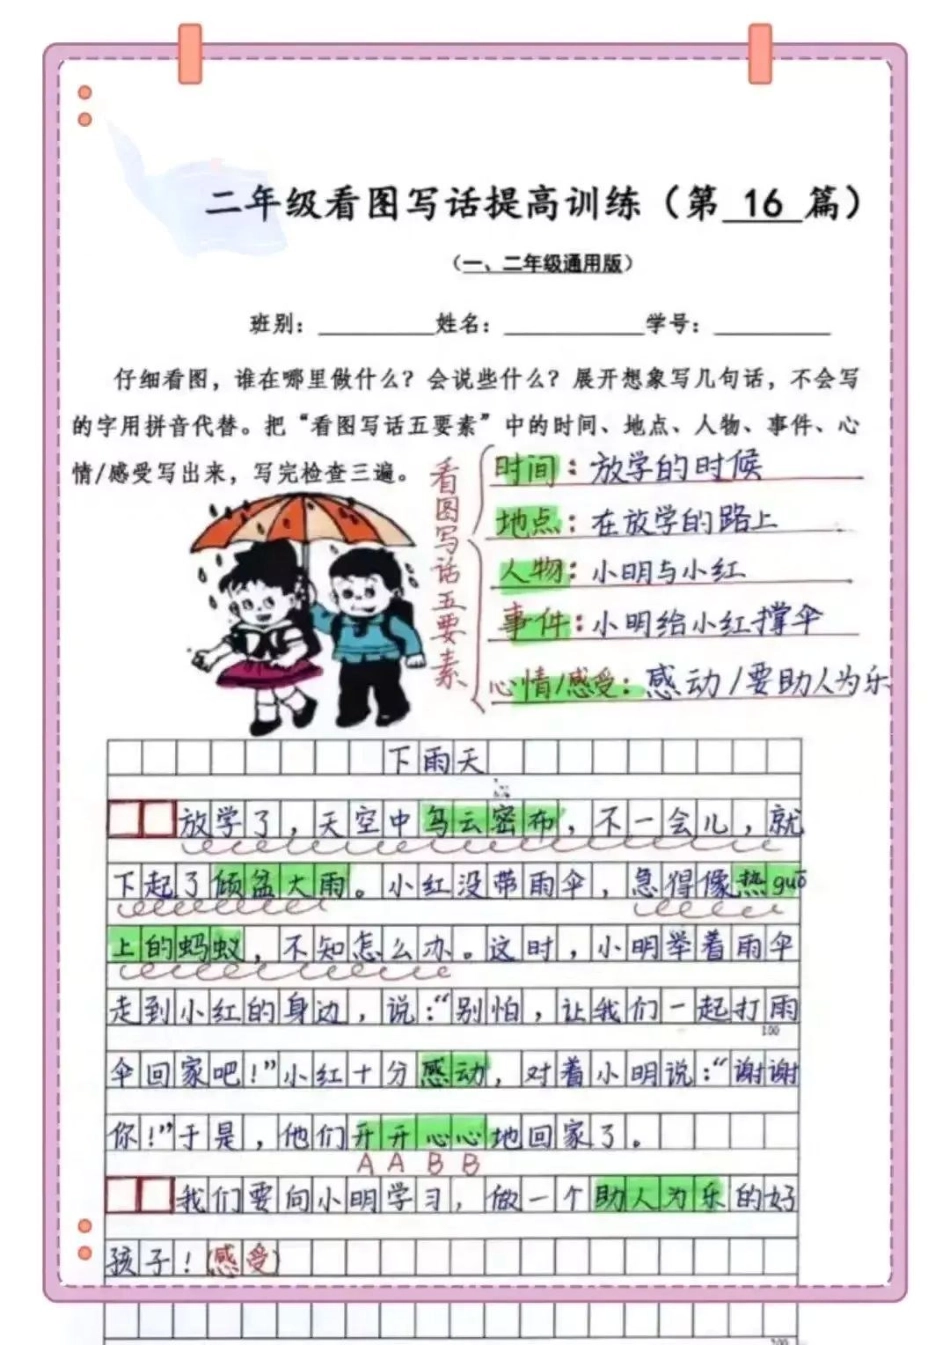 二年级看图写话提高训练（第 16 篇）
（一、二年级通用版）
班别：________姓名：__________学号：________
仔细看图，谁在哪里做什么？会说些什么？展开想象写几句话，不会写
的字用拼音代替。把“看图写话五要素”中的时间、地点、人物、事件、心
情/感受写出来，写完检查三遍。
看图写话五要素
时间：放学的时候
地点：在放学的路上
人物：小明与小红
事件：小明给小红撑伞
心情/感受：感动/要助人为乐
下雨天
放学了，天空中乌云密布，不一会儿，就
下起了倾盆大雨。小红没带雨伞，急得像热guō
上的蚂蚁，不知怎么办。这时，小明举着雨伞
走到小红的身边，说：“别怕，让我们一起打雨
100
伞回家吧！”小红十分感动，对着小明说：“谢谢
你！”于是，他们开开心心地回家了。
A A B B
我们要向小明学习，做一个助人为乐的好
孩子！(感受)
200